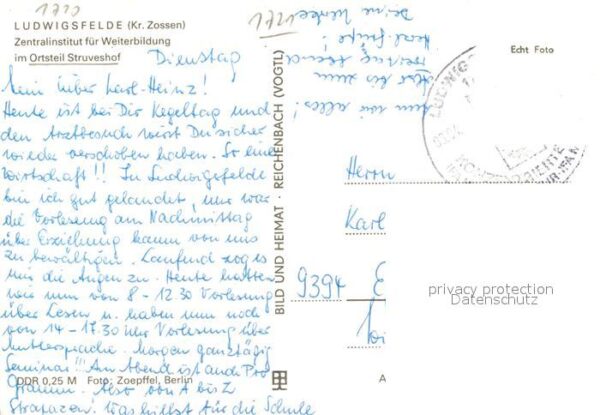 1720
1271
LUDWIGSFELDE (Kr. Zossen)
Zentralinstitut für Weiterbildung
im Ortsteil Struveshof
Dienstag
Mein lieber Karl-Heinz!
Heute ist bei Dir Kegeltag und
den Arztbesuch wirst Du sicher
wieder verschoben haben. So eine
Wirtschaft!! In Ludwigsfelde
bin ich gut gelandet, nur war
die Vorlesung am Nachmittag
über Erziehung kaum von uns
zu bewältigen. Laufend zog es
mir die Augen zu. Heute hatten
wir nun von 8-12.30 Vorlesung
über Lesen u. haben nun noch
von 14-17.30 Uhr Vorlesung über
Muttersprache. Morgen ganztägig
Seminar!!! Am Abend ist auch Pro
gramm. Also von A bis Z
Strapazen! Was hilfst für die Schule
DDR 0,25 M Foto: Zoepffel, Berlin
BILD UND HEIMAT · REICHENBACH (VOGTL)
nun wie alles!
bis zum
Abend
Herzl. Grüße!
Deine
Echt Foto
LUDWIGS
Herrn
Karl
9394 E
A
privacy protection
Datenschutz